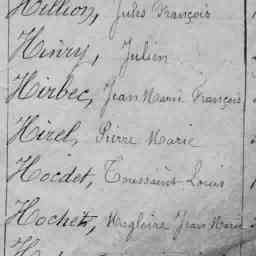 Hillion, Jules François
Hinry, Julien
Hirbec, Jean Marie François
Hirel, Pierre Marie
Hocdet, Toussaint Louis
Hochet, Magloire Jean Marie